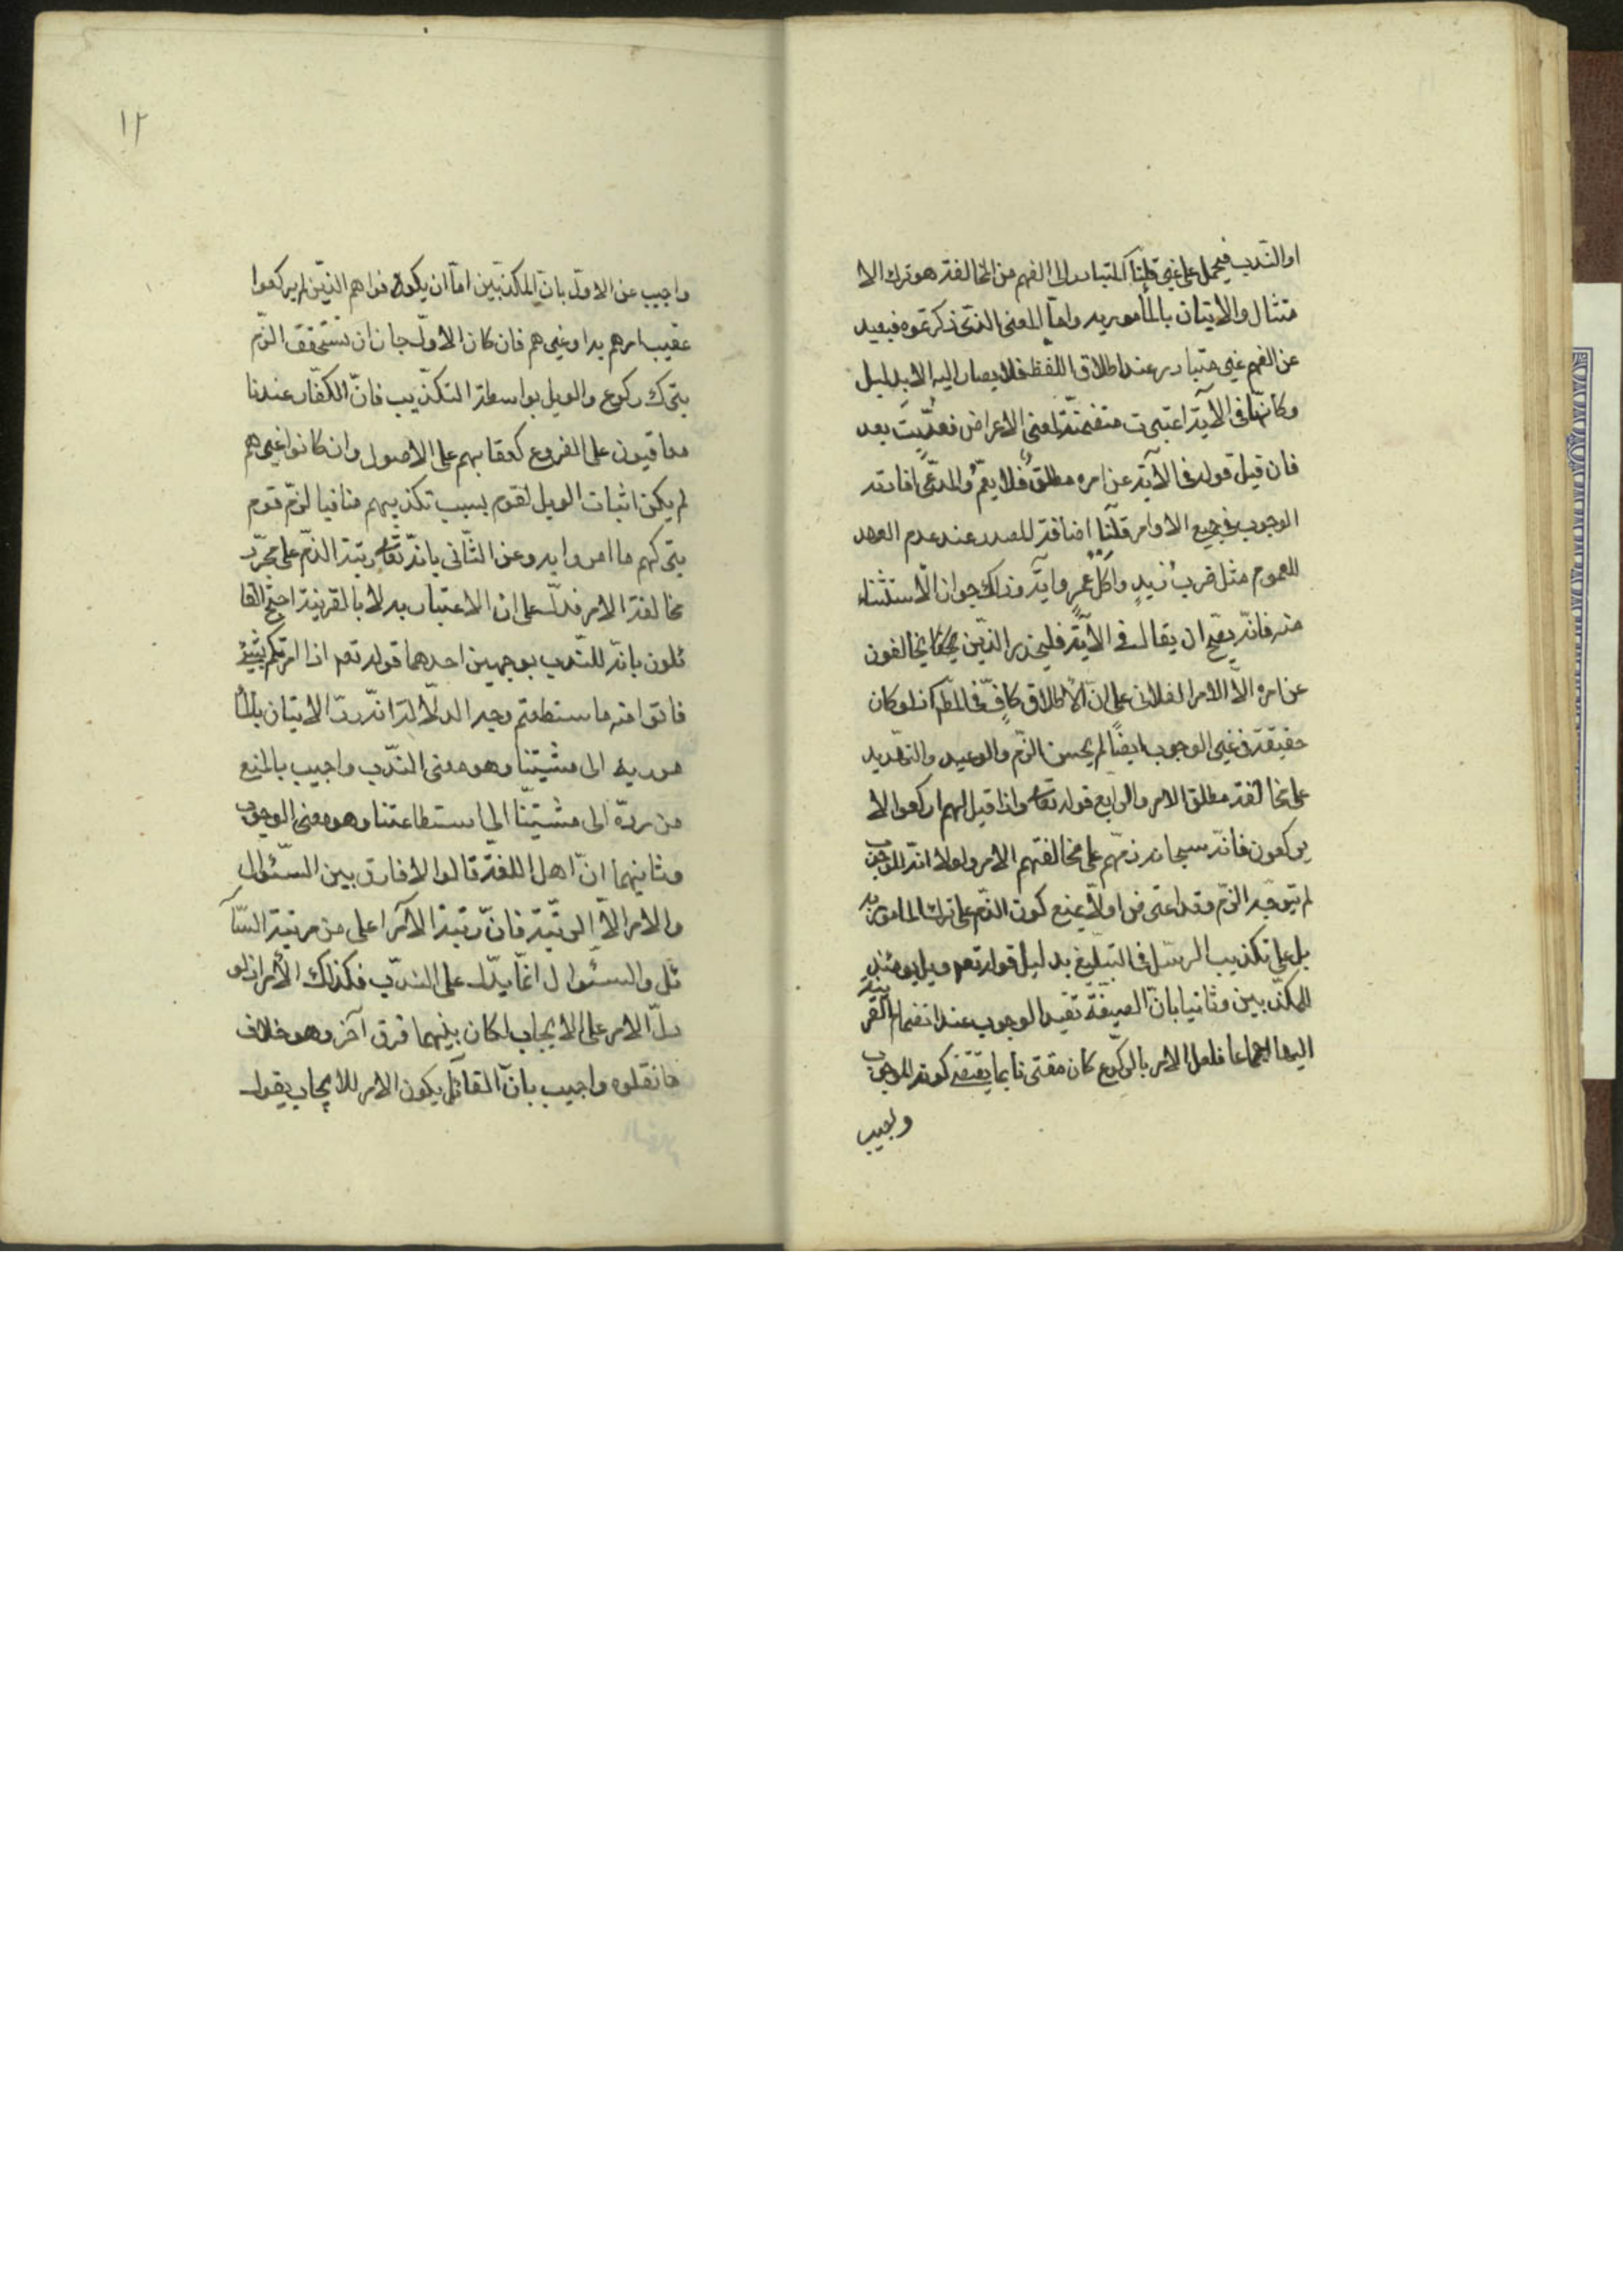 او الندب فيحمل على غيره قلنا المتبادر الى الفهم من المخالفة هو ترك الا
متثال والاتيان بالمأمور به واما المعنى الذى ذكرتموه فبعيد
عن الفهم غير متبادر عند اطلاق اللفظ فلا يصار اليه الا بدليل
وكانها فى الآية اعتبرت متضمنة لمعنى الاعراض فعديت بعد
فان قيل قوله فى الآية عن امره مطلق فلا يعم والمدعى افادته
الوجوب فى جميع الاوامر قلنا اضافة المصدر عند عدم العهد
للعموم مثل ضرب زيد واكل عمرو وآية ذلك جواز الاستثناء
منه فانه يصح ان يقال فى الآية فليحذر الذين يخالفون
عن امره الا الامر الفلانى على ان الاطلاق كاف فى المط اذ لو كان
حقيقة فى غير الوجوب ايضا لم يحسن الذم والوعيد والتهديد
على مخالفة مطلق الامر والرابع قوله تعالى واذا قيل لهم اركعوا لا
يركعون فانه سبحانه ذمهم على مخالفتهم الامر ولولا انه للوجوب
لم يتوجه الذم وقد اعترض اولا بمنع كون الذم على ترك المامور به
بل على تكذيب الرسل فى التبليغ بدليل قوله تعم ويل يومئذ
للمكذبين وثانيا بان الصيغة تفيد الوجوب عند انضمام القرينة
اليها اجماعا فلعل الامر بالركوع كان مقترنا بما يقتضى كونه للوجوب
واجيب
١٢
واجيب عن الاول بان المكذبين اما ان يكونوا هم الذين لم يركعوا
عقيب امرهم به او غيرهم فان كان الاول جاز ان نستحقق الذم
بترك ركوع والويل بواسطة التكذيب فان الكفار عندنا
معاقبون على الفروع كعقابهم على الاصول وان كانوا غيرهم
لم يكن اثبات الويل لقوم بسبب تكذيبهم منافيا لذم قوم
بتركهم ما امروا به وعن الثانى بانه تعالى رتبة الذم على مجرد
مخالفة الامر فدل على ان الاعتبار به لا بالقرينة احتج القا
ئلون بانه للندب بوجهين احدهما قوله تعم اذا امرتكم بشئ
فاتوا منه ما ستطعتم وجه الدلالة انه رد الاتيان بالمأ
مور به الى مشيتنا وهو معنى الندب واجيب بالمنع
من رده الى مشيتنا الى استطاعتنا وهو معنى الوجوب
وثانيهما ان اهل اللغة قالوا لا فارق بين السئوال
والامر الا الرتبة فان رتبة الآمر اعلى من مرتبة السآ
ئل والسئوال انما يدل على الندب فكذلك الأمر اذ لو
دل الامر على الايجاب لكان بينهما فرق آخر وهو خلاف
ما نقلوه واجيب بان القائل يكون الامر للايجاب يقول